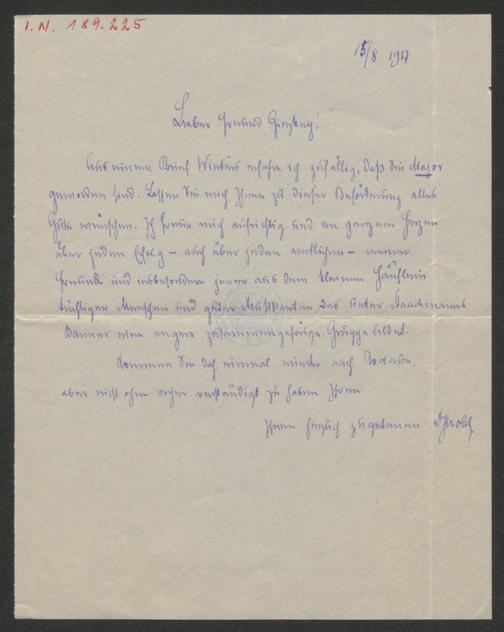 I.N. 189.225
15/8 1917
Lieber Freund Ginzkey!
Aus einem Brief Winters erfahre ich zufällig, daß Sie Major
geworden sind. Lassen Sie mich Ihnen zu dieser Beförderung alles
Gute wünschen. Ich freue mich aufrichtig und von ganzem Herzen
über jeden Erfolg – auch über jeden amtlichen – meiner
Freunde und insbesondere jener aus dem kleinen Häuflein
tüchtiger Menschen und guter Musikanten das unter Staackmanns
Banner eine enger zusammengehörige Gruppe bildet.
Kommen Sie doch einmal wieder nach
aber nicht ohne vorher verständigt zu haben Ihren
Ihnen herzlich zugetanen Strobl